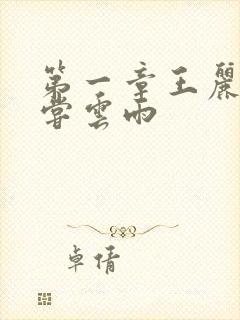 第一章王麗
嘗雲雨
卓倩